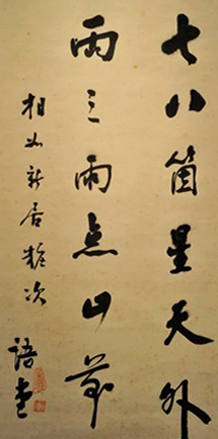 七八箇星天外
両三雨点山前
相如新居雜次
語堂